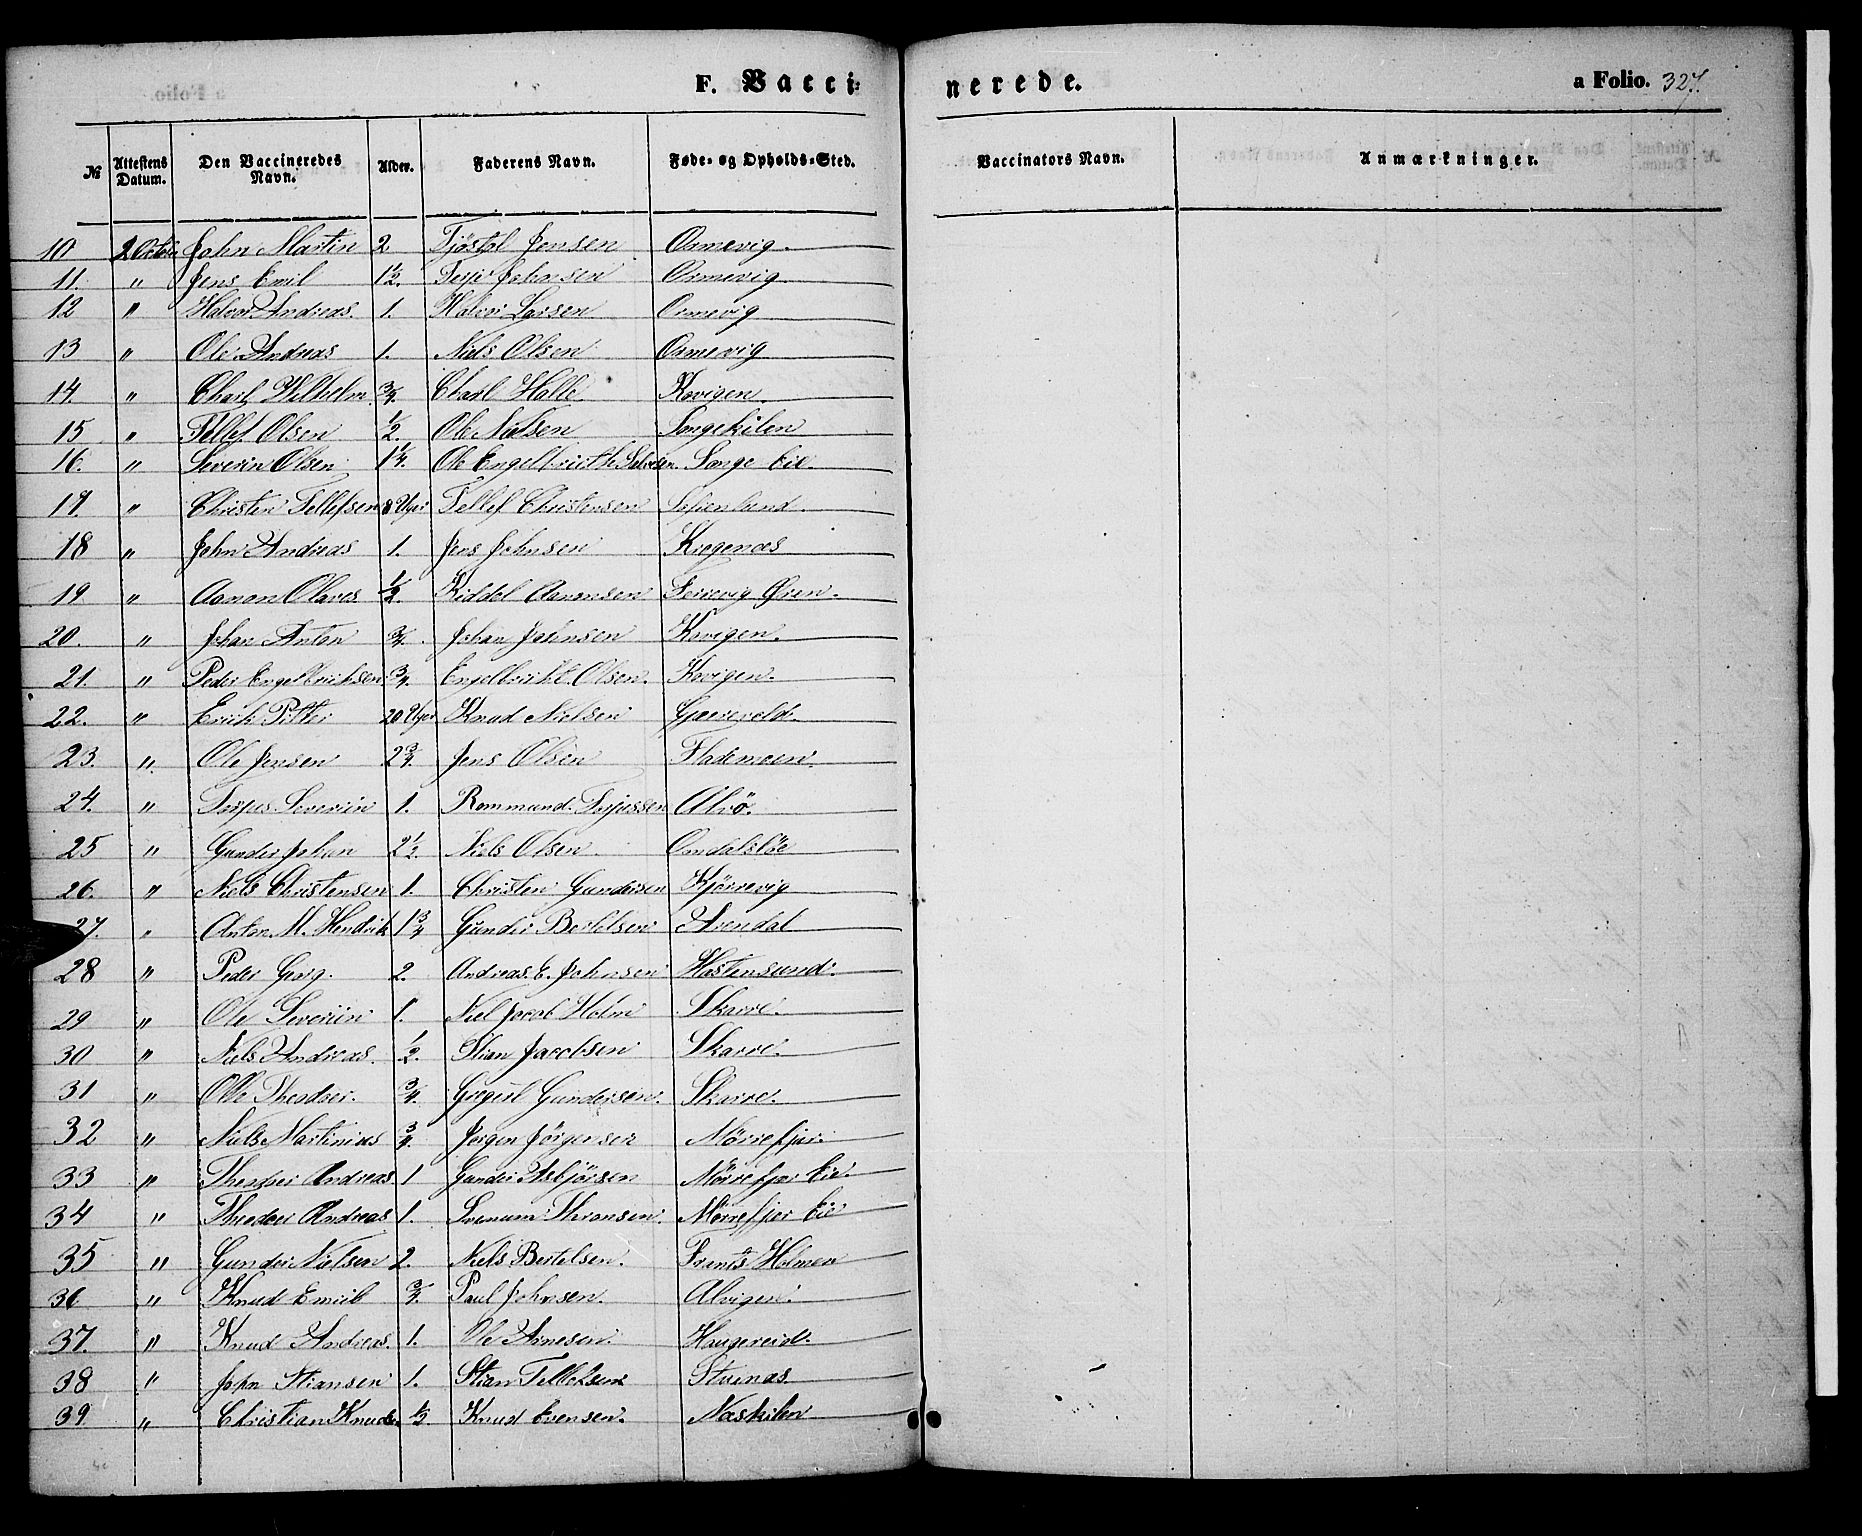 F. Vacci=
nerede.
a Folio. 327.
№ Attestens Datum. Den Vaccineredes Navn. Alder. Faderens Navn. Føde- og Opholds-Sted. Vaccinators Navn. Anmærkninger.
10 2 Octob. John Martin 2 Tjöstol Jensen Ormevig.
11. " Jens Emil 1½. Terje Johnsen Ormevig
12 " Halvor Andreas. 1. Halvor Larsen Ormevig
13 " Ole Andreas 1. Niels Olsen Ormevig
14. " Charl Wilhelm ¾. Charl Halle Kovigen.
15 " Tellef Olsen ½. Ole Nielsen Songekilen
16. " Severin Olsen 1¼. Ole Engelbricth Songe Eie.
17. " Christen Tellefsen 8 Uger Tellef Christensen
18 " John Andreas 1. Jens Johnsen Kregenæs
19 " Aanon Olaves ½. Kiddel Aanonsen Øren.
20. " Johan Anton ¾. Johan Johnsen Kovigen.
21. " Peder Engelbrichsen ¾. Engelbrikt Olsen. Kovigen.
22. " Erich Pitter 20 Uger Knud Nielsen
23. " Ole Jensen 2¾. Jens Olsen Flademoen.
24. " Severin 1. Rommund Alvö.
25 " Gunder Johan 2½. Niels Olsen. Omdalsöe
26. " Niels Christensen 1. Christen Gundersen Kjörrevig
27. " Anton M. Hendrik 1¾ Gunder Bertelsen Arendal
28 " Peder Georg. 2. Andreas E. Johnsen Hastensund.
29 " Ole Severiin 1. Niel Jacob Holm Skarre.
30 " Niels Andreas. ½. Stian Jacobsen Skarre.
31 " Olle Theodor. ¾. Gundersen. Skarre.
32 " Niels Martinius ¾. Jørgen Jörgensen Mörrefjær
33 " Theodor Andreas. 1 Gunder Asbjörsen Mörrefjær Eie.
34 " Theodor Andreas 1. Mörrefjær Eie
35 " Gunder Nielsen 2. Niels Bertelsen. Frants Holmen
36 " Knud Emiil ¾. Paul Johnsen. Alvigen.
37. " Knud Andreas. 1. Ole Arnesen. Haugereid.
38 " John Stiansen 1. Stian Stuenæs.
39 " Christian Knuds. ½ Knud Evensen. Næskilen